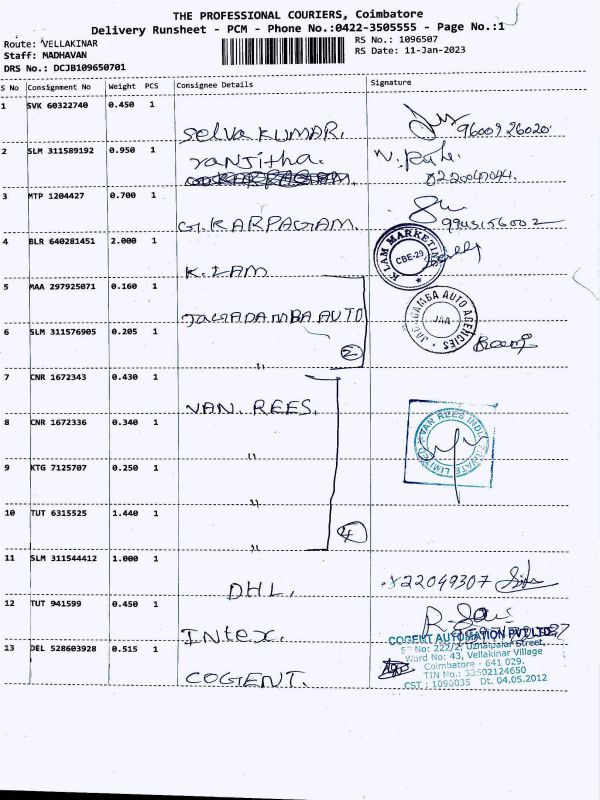 THE PROFESSIONAL COURIERS, Coimbatore
Delivery Runsheet - PCM - Phone No.:0422-3505555 - Page No.:1
Route: VELLAKINAR
RS No.: 1096507
Staff: MADHAVAN
RS Date: 11-Jan-2023
DRS No.: DCJB109650701
S No Consignment No Weight PCS Consignee Details Signature
1 SVK 60322740 0.450 1
Selva KUMAR. 9600926020
2 SLM 311589192 0.950 1
ranjitha.
3 MTP 1204427 0.700 1
G.KARPAGAM.
4 BLR 640281451 2.000 1
K LAM MARKETING
CBE-29
K.LAM
5 MAA 297925071 0.160 1
JAGADAMBA AUTO AGENCIES
JAA
JAGADAMBA AUTO
6 SLM 311576905 0.205 1
" 2
7 CNR 1672343 0.430 1
VAN. REES.
8 CNR 1672336 0.340 1
"
9 KTG 7125707 0.250 1
"
10 TUT 6315525 1.440 1
" 4
11 SLM 311544412 1.000 1
DHL. 822049307
12 TUT 941599 0.450 1
Intex.
COGENT AUTOMATION PVT LTD.
SF No: 222/2, Uzhaipalar Street,
13 DEL 528603928 0.515 1
Word No: 43, Vellakinar Village
Coimbatore - 641 029.
TIN No.: 33502124650
COGENT.
CST : 1096035 Dt. 04.05.2012